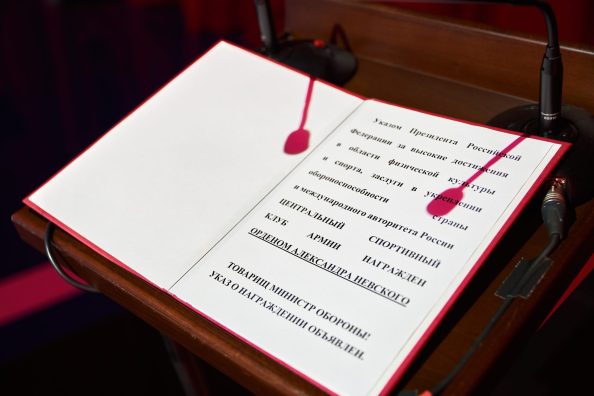 Указом Президента Российской
Федерации за высокие достижения
в области физической культуры
и спорта, заслуги в укреплении
обороноспособности страны
и международного авторитета России
ЦЕНТРАЛЬНЫЙ СПОРТИВНЫЙ
КЛУБ АРМИИ НАГРАЖДЕН
ОРДЕНОМ АЛЕКСАНДРА НЕВСКОГО
ТОВАРИЩ МИНИСТР ОБОРОНЫ!
УКАЗ О НАГРАЖДЕНИИ ОБЪЯВЛЕН.